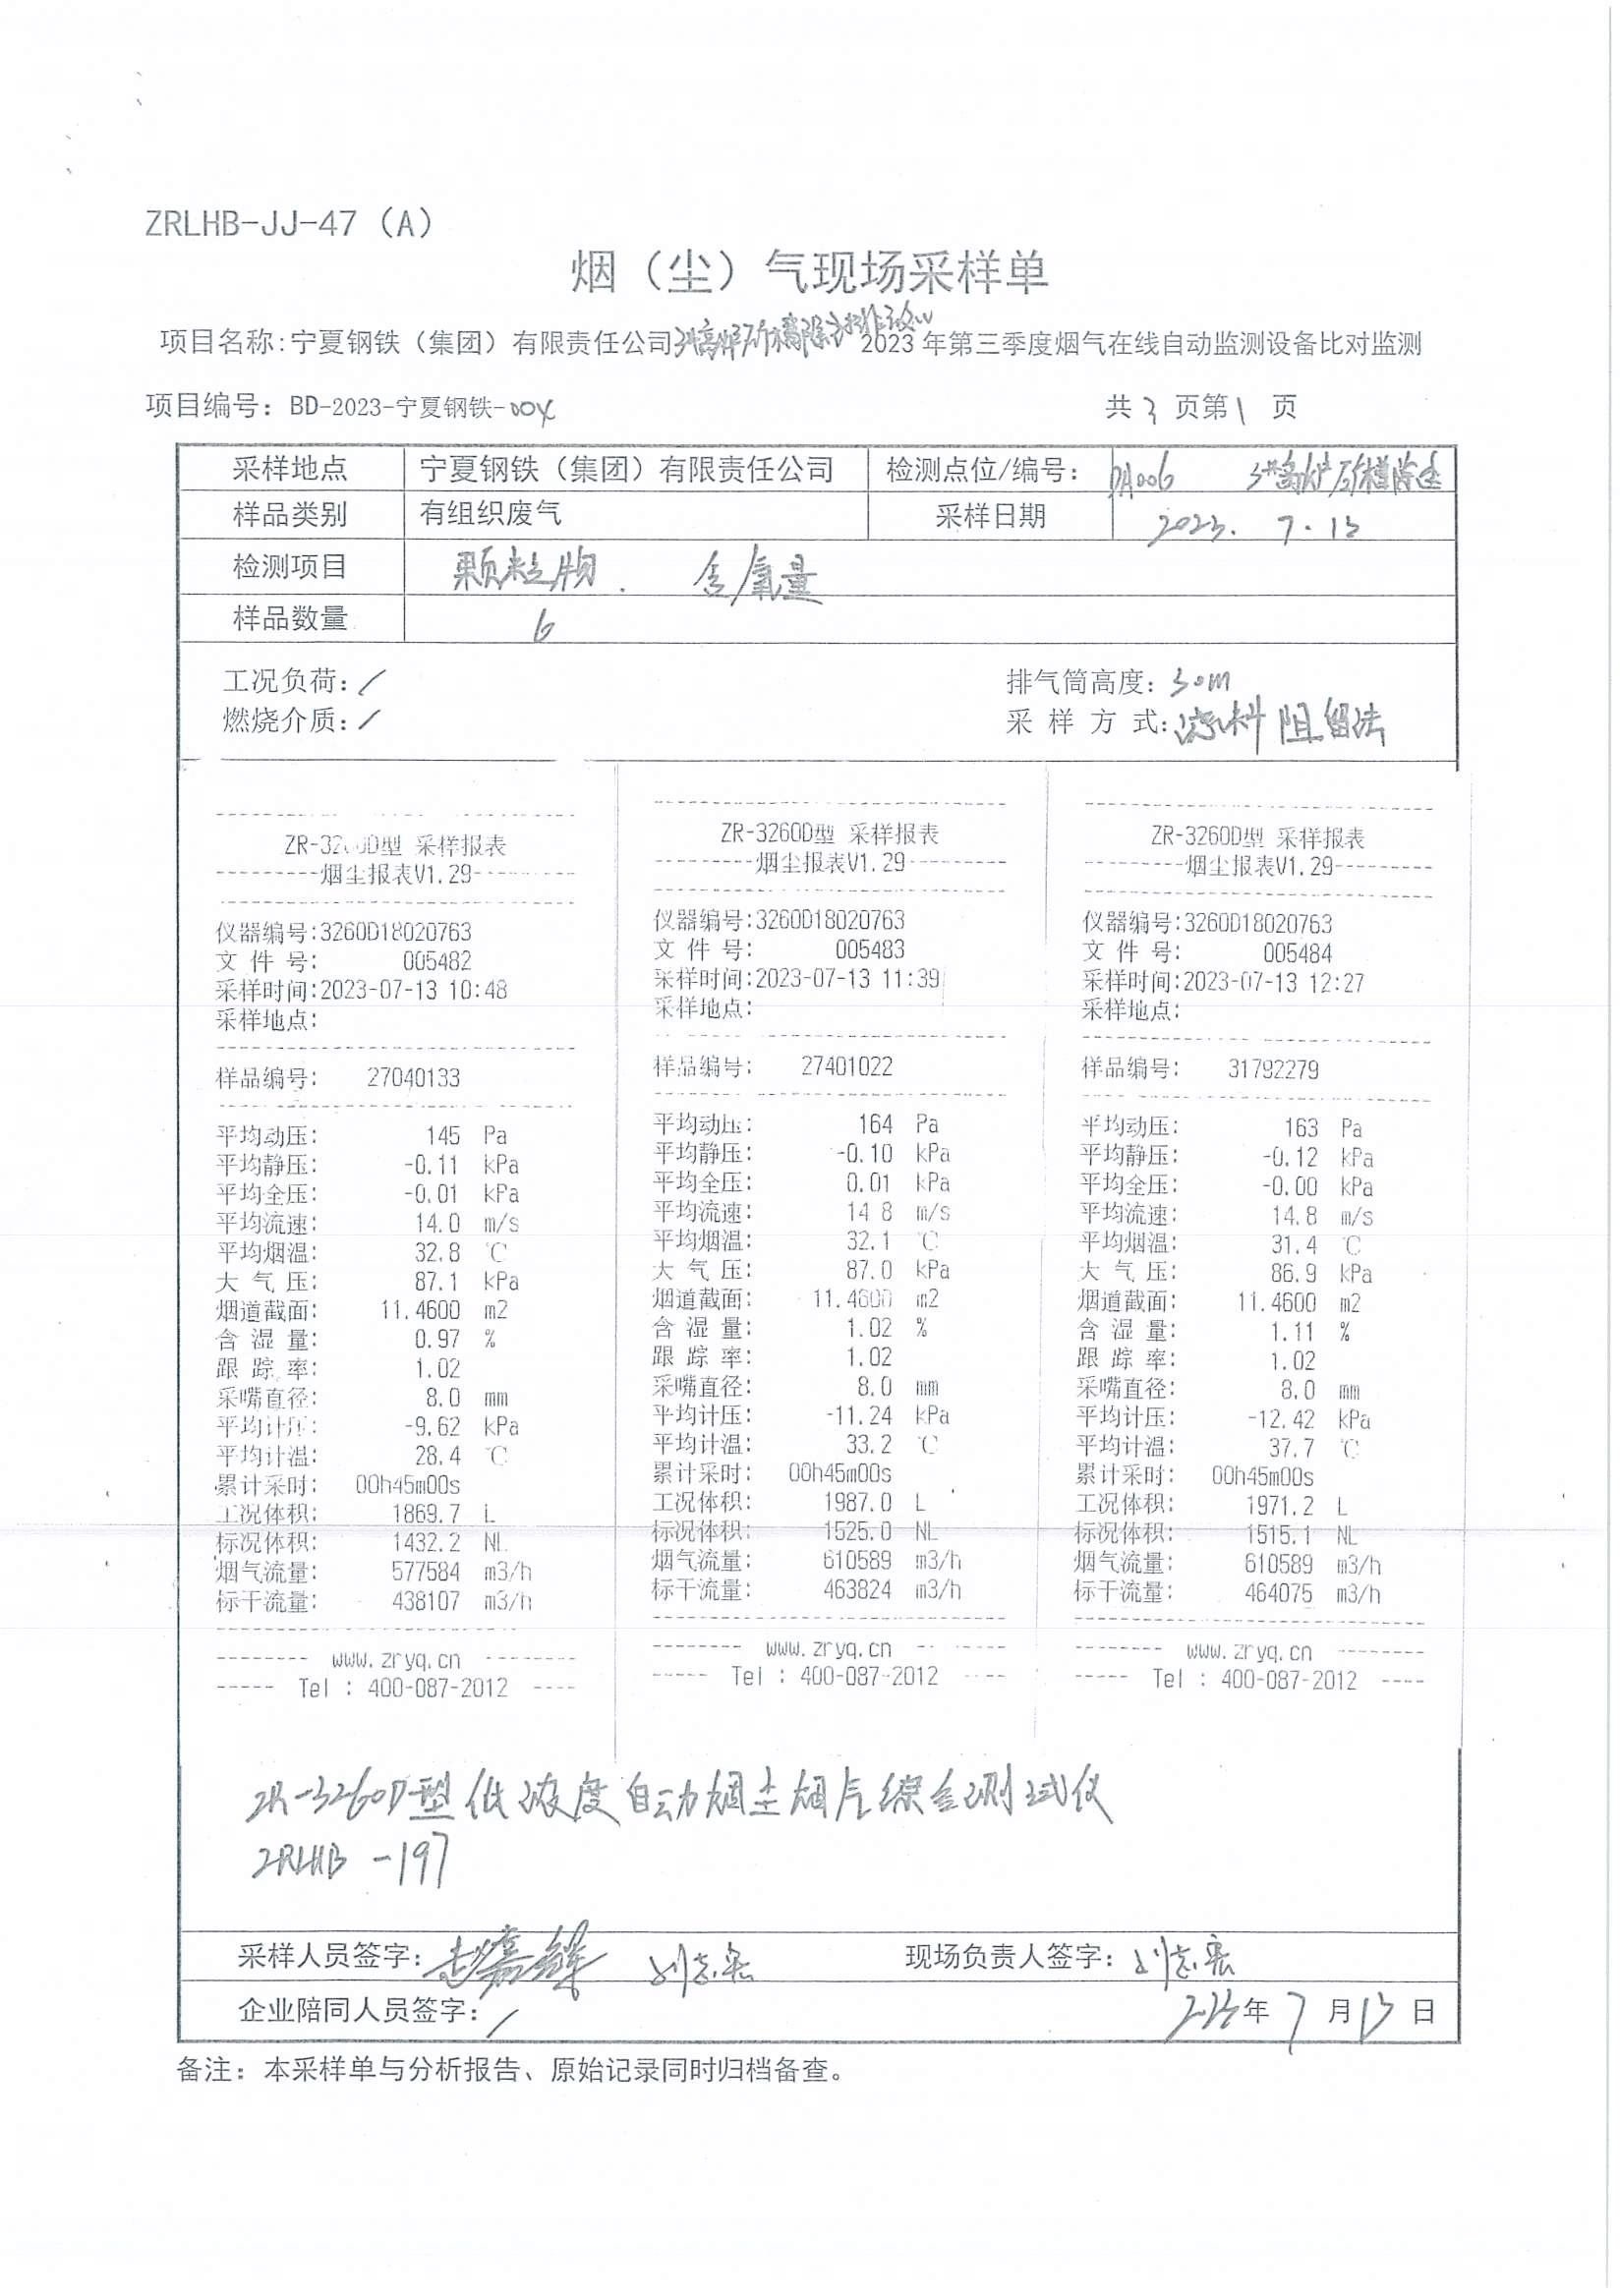 ZRLHB-JJ-47（A）
烟（尘）气现场采样单
项目名称:宁夏钢铁（集团）有限责任公司3#高炉矿槽除尘排放口2023年第三季度烟气在线自动监测设备比对监测
项目编号：BD-2023-宁夏钢铁-00 共3页第1页
采样地点 宁夏钢铁（集团）有限责任公司 检测点位/编号: DA006 3#高炉矿槽除尘
样品类别 有组织废气 采样日期 2023. 7. 13
检测项目 颗粒物. 含氧量
样品数量 6
工况负荷: / 排气筒高度: 30m
燃烧介质: / 采样方式: 滤料阻留法
ZR-3260D型 采样报表
---------烟尘报表V1.29---------
仪器编号:3260D18020763
文件号: 005482
采样时间:2023-07-13 10:48
采样地点:
样品编号: 27040133
平均动压: 145 Pa
平均静压: -0.11 kPa
平均全压: -0.01 kPa
平均流速: 14.0 m/s
平均烟温: 32.8 ℃
大气压: 87.1 kPa
烟道截面: 11.4600 m2
含湿量: 0.97 %
跟踪率: 1.02
采嘴直径: 8.0 mm
平均计压: -9.62 kPa
平均计温: 28.4 ℃
累计采时: 00h45m00s
工况体积: 1869.7 L
标况体积: 1432.2 NL
烟气流量: 577584 m3/h
标干流量: 438107 m3/h
-------- www.zryq.cn --------
----- Tel : 400-087-2012 ----
ZR-3260D型 采样报表
---------烟尘报表V1.29---------
仪器编号:3260D18020763
文件号: 005483
采样时间:2023-07-13 11:39
采样地点:
样品编号: 27401022
平均动压: 164 Pa
平均静压: -0.10 kPa
平均全压: 0.01 kPa
平均流速: 14.8 m/s
平均烟温: 32.1 ℃
大气压: 87.0 kPa
烟道截面: 11.4600 m2
含湿量: 1.02 %
跟踪率: 1.02
采嘴直径: 8.0 mm
平均计压: -11.24 kPa
平均计温: 33.2 ℃
累计采时: 00h45m00s
工况体积: 1987.0 L
标况体积: 1525.0 NL
烟气流量: 610589 m3/h
标干流量: 463824 m3/h
-------- www.zryq.cn --------
----- Tel : 400-087-2012 ----
ZR-3260D型 采样报表
---------烟尘报表V1.29---------
仪器编号:3260D18020763
文件号: 005484
采样时间:2023-07-13 12:27
采样地点:
样品编号: 31792279
平均动压: 163 Pa
平均静压: -0.12 kPa
平均全压: -0.00 kPa
平均流速: 14.8 m/s
平均烟温: 31.4 ℃
大气压: 86.9 kPa
烟道截面: 11.4600 m2
含湿量: 1.11 %
跟踪率: 1.02
采嘴直径: 8.0 mm
平均计压: -12.42 kPa
平均计温: 37.7 ℃
累计采时: 00h45m00s
工况体积: 1971.2 L
标况体积: 1515.1 NL
烟气流量: 610589 m3/h
标干流量: 464075 m3/h
-------- www.zryq.cn --------
----- Tel : 400-087-2012 ----
ZR-3260D型低浓度自动烟尘烟气综合测试仪
ZRLHB -197
采样人员签字: 现场负责人签字:
企业陪同人员签字: / 2023年7月13日
备注：本采样单与分析报告、原始记录同时归档备查。